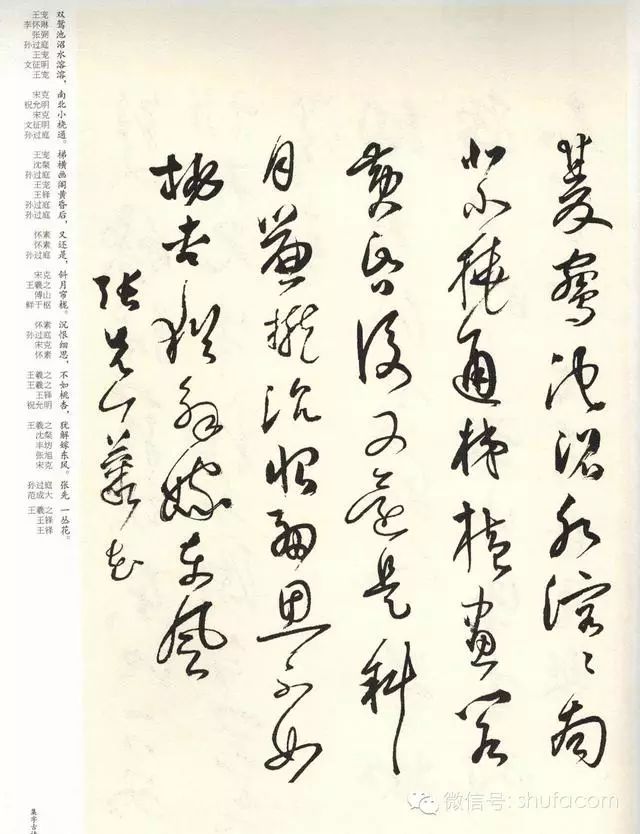 雙鴛池沼水溶〻南
北小橈通梯橫畫閣
黃昏後又還是斜
月簾櫳沉恨細思不如
桃杏猶解嫁東風
張先一叢花
双鸳池沼水溶溶，
南北小桡通。
梯横画阁黄昏后，
又还是，
斜月帘栊。
沉恨细思，
不如桃杏，
犹解嫁东风。
张先
一丛花。
王宠 李怀琳 张弼 孙过庭 王宠 文征明 王宠
宋克 祝允明 宋克 文征明 孙过庭
王宠 沈粲 孙过庭 王宠 王铎 孙过庭 孙过庭
怀素 怀素 孙过庭
宋克 王羲之 傅山 鲜于枢
怀素 孙过庭 宋克 怀素
王羲之 王羲之 王铎 祝允明
王羲之 沈粲 丰坊 张旭 宋克
孙过庭 范成大
王羲之 王铎 王铎
集字古
微信号: shufacom